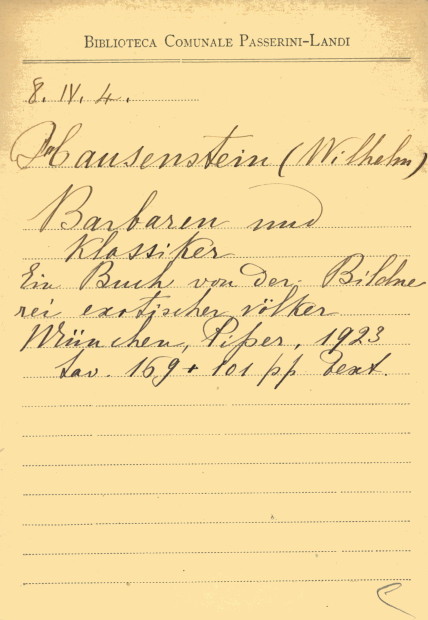 BIBLIOTECA COMUNALE PASSERINI-LANDI
8. IV. 4.
Hausenstein (Wilhelm)
Barbaren und
Klassiker
Ein Buch von der Bildne
rei exotischer völker
München, Piper, 1923
tav. 169 + 101 pp Text.